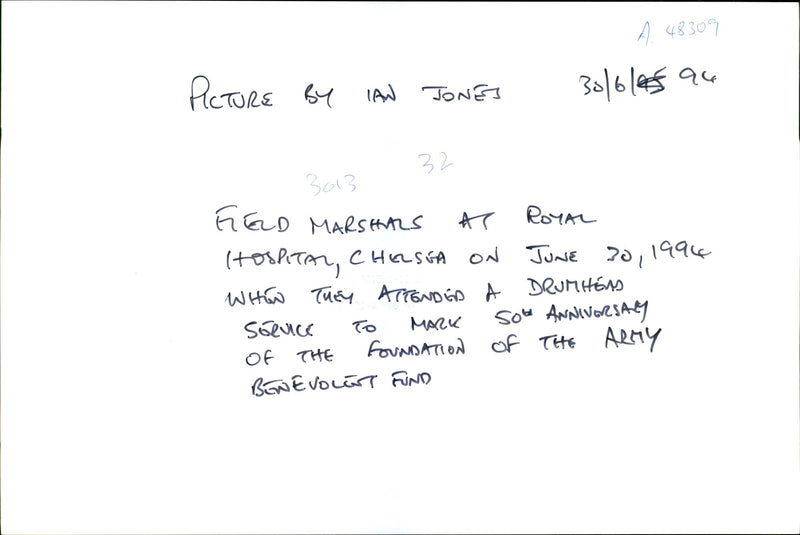 A. 48309
PICTURE BY IAN JONES 30/6/95 94
3013 32
FIELD MARSHALS AT ROYAL
HOSPITAL, CHELSEA ON JUNE 30, 1994
WHEN THEY ATTENDED A DRUMHEAD
SERVICE TO MARK 50th ANNIVERSARY
OF THE FOUNDATION OF THE ARMY
BENEVOLENT FUND